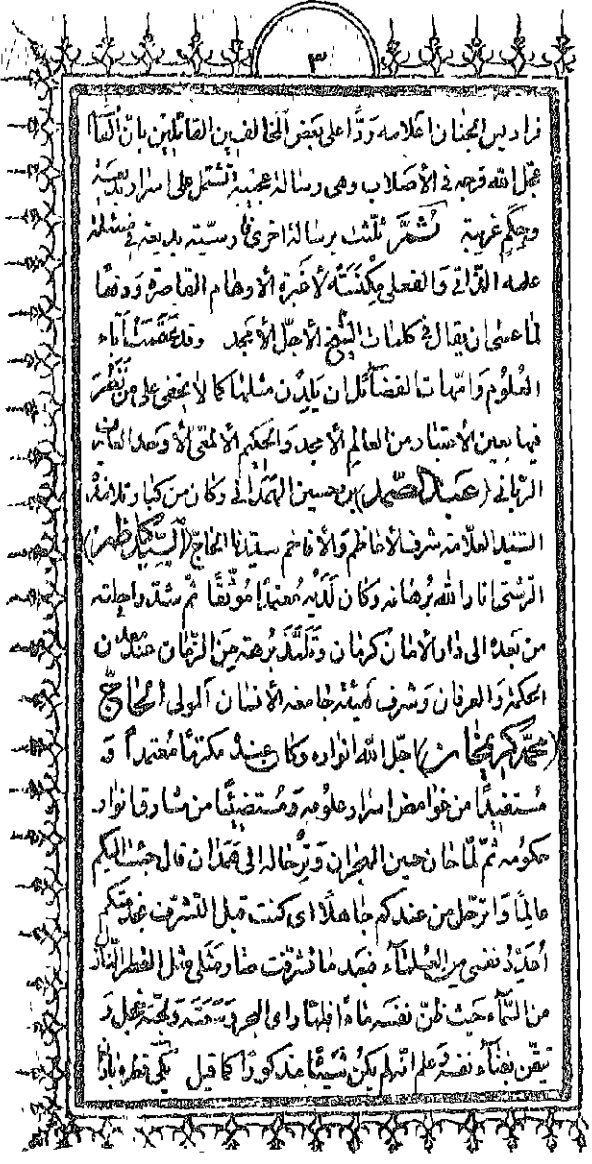 ٣
فراديس الجنان اعلامه ردًّا على بعض المخالفين القائلين بان القائم
عجّل الله فرجه في الأصلاب وهى رسالة عجيبة تشتمل على اسرار بديعة
وحكم غريبة ثم ثلّثت برسالة اخرى فارسيّة بديعة في مسئلة
علمه الذّاتي والفعلي مكنسة لأغبرة الأوهام القاصرة ودفعا
لما عسى ان يقال في كلمات الشيخ الأجلّ الأمجد وقد عقمت آباء
العلوم وامّهات الفضائل ان يلدن مثلها كما لا يخفى على من نظر
فيها بعين الأعتبار من العالم الأمجد والحكيم الألمعىّ الأوحد العالم
الرّبانى (عبد الصّمد) بن حسين الهمدانى وكان من كبار تلامذة
السّيد العلّامة شرف الأعاظم والأفاخم سيّدنا الحاجّ (السّيّد كاظم)
الرّشتى انار الله برهانه وكان لديه معتمدا موثّقًا ثمّ شدّ راحلته
من بعده الى دار الأمان كرمان وتلمّذ برهة من الزّمان عند معدن
الحكمة والعرفان وشرف هيئة جامعة الأنسان المولى الحاجّ
(محمّد كريم خان) اجلّ الله انواره وكان عنده مكرّمًا معتمداً و
مستفيدًا من غوامض اسرار علومه ومستضيئًا من مشارق انوار
حكومه ثمّ لمّا حان حين الهجران وترحاله الى همدان قال جئت اليكم
عالمًا وارتحل من عندكم جاهلًا اى كنت قبل التّشرف بخدمتكم
اعدّد نفسى من العلماء فبعد ما تشرّفت صار مثلى مثل القطر النّازل
من السّماء حيث ظنّ نفسه ماءً فلمّا راى البحر وسعته ولجّته خجل و
تيقّن بفناء نفسه وعلم انّه لم يكن شيئًا مذكورًا كما قيل يكى قطره باران